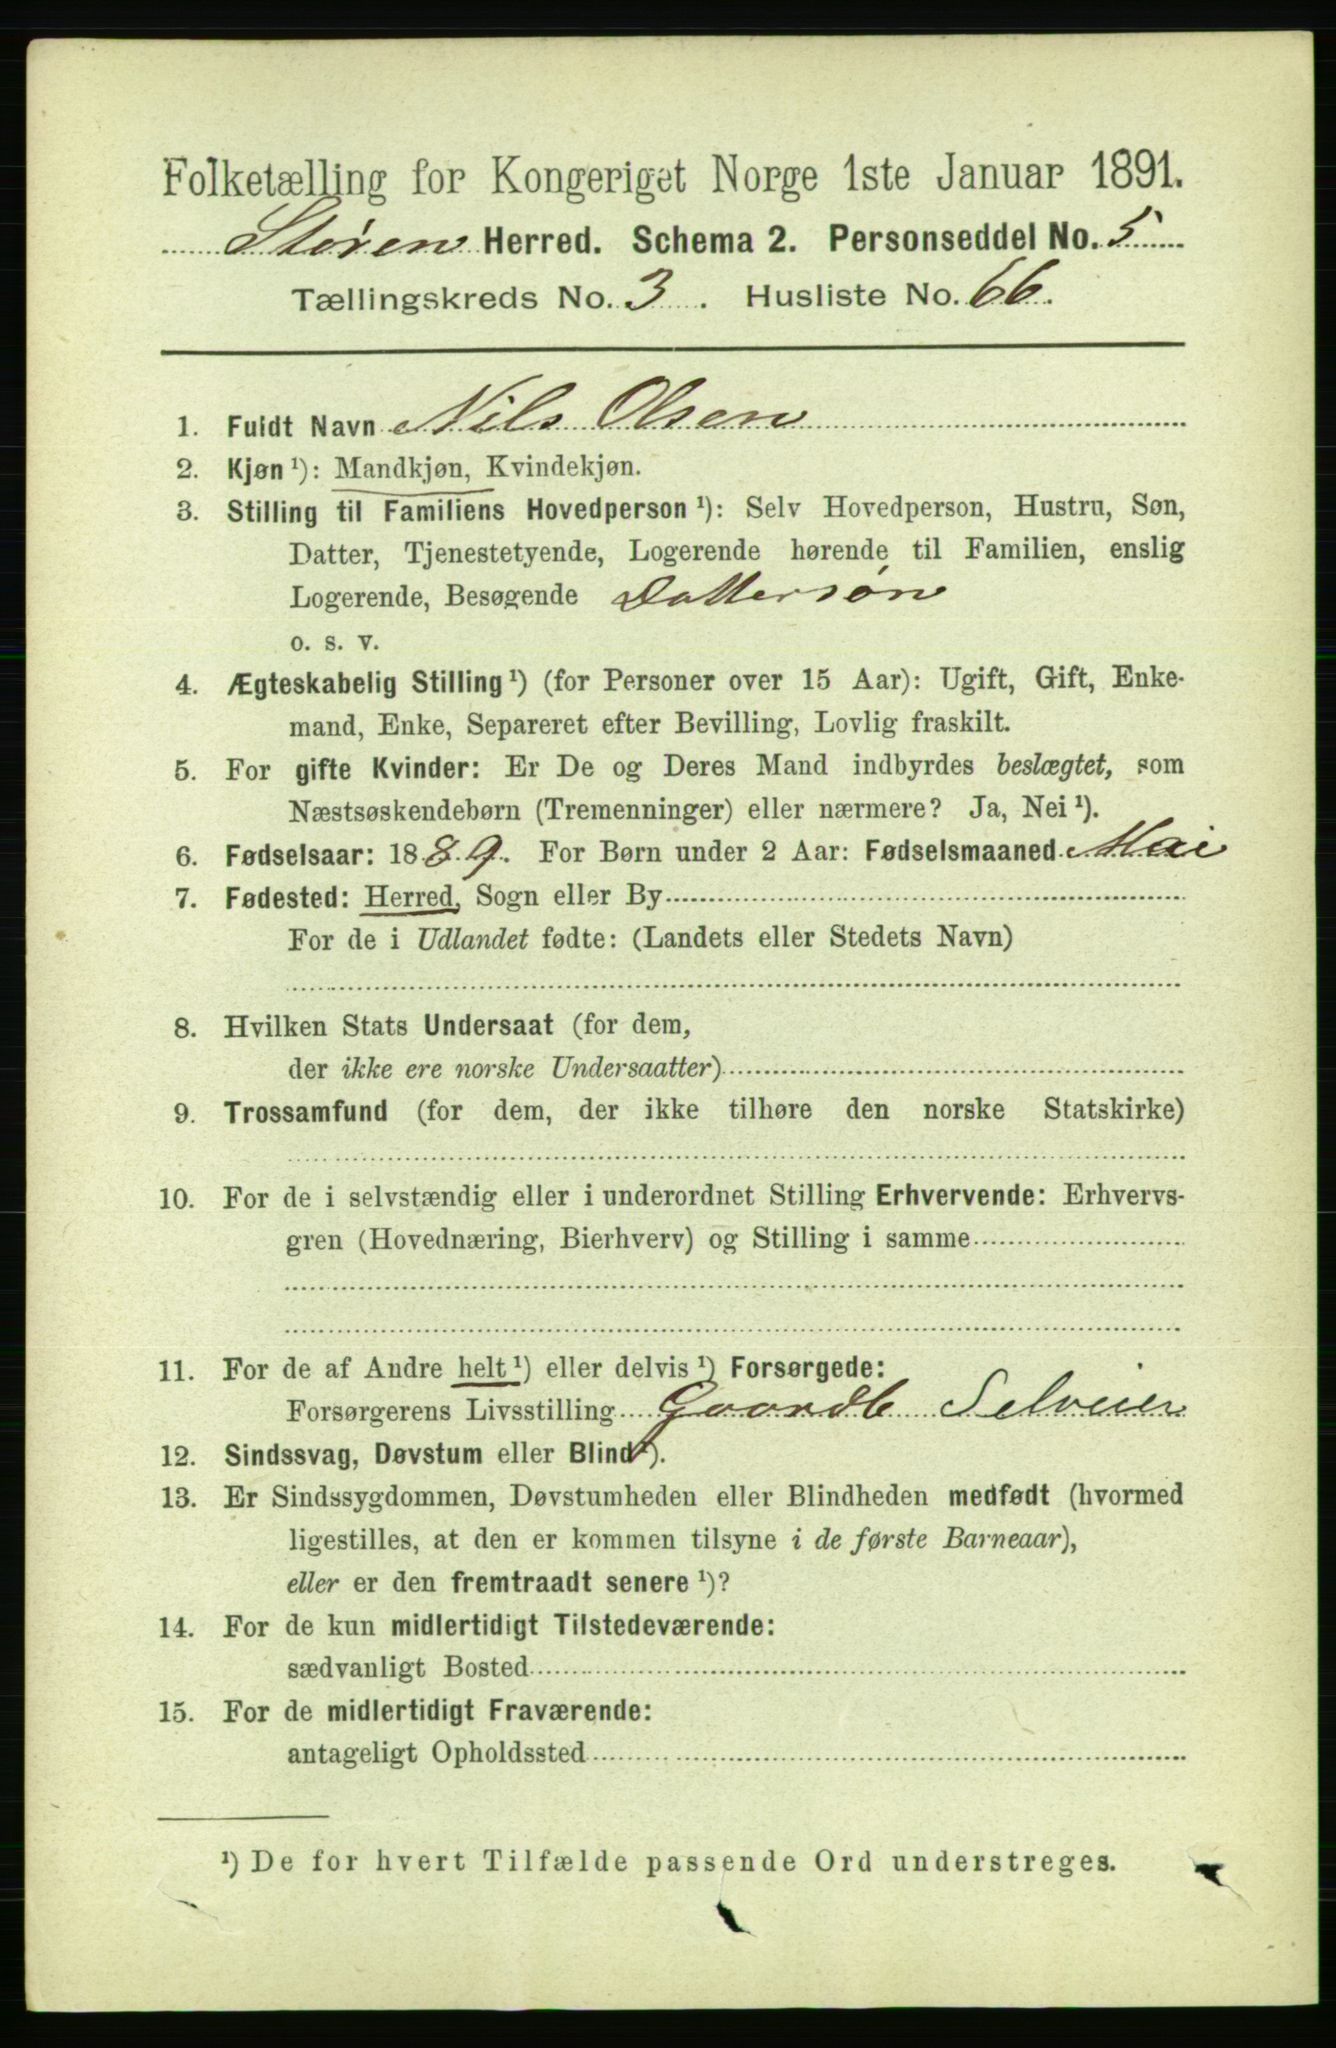 Folketælling for Kongeriget Norge 1ste Januar 1891.
Støren Herred. Schema 2. Personseddel No. 5
Tællingskreds No. 3. Husliste No. 66.
1. Fuldt Navn Nils Olsen
2. Kjøn ¹): Mandkjøn, Kvindekjøn.
3. Stilling til Familiens Hovedperson ¹): Selv Hovedperson, Hustru, Søn,
Datter, Tjenestetyende, Logerende hørende til Familien, enslig
Logerende, Besøgende Dattersøn
o. s. v.
4. Ægteskabelig Stilling ¹) (for Personer over 15 Aar): Ugift, Gift, Enke-
mand, Enke, Separeret efter Bevilling, Lovlig fraskilt.
5. For gifte Kvinder: Er De og Deres Mand indbyrdes beslægtet, som
Næstsøskendebørn (Tremenninger) eller nærmere? Ja, Nei ¹).
6. Fødselsaar: 1889. For Børn under 2 Aar: Fødselsmaaned Mai
7. Fødested: Herred, Sogn eller By
For de i Udlandet fødte: (Landets eller Stedets Navn)
8. Hvilken Stats Undersaat (for dem,
der ikke ere norske Undersaatter)
9. Trossamfund (for dem, der ikke tilhøre den norske Statskirke)
10. For de i selvstændig eller i underordnet Stilling Erhvervende: Erhvervs-
gren (Hovednæring, Bierhverv) og Stilling i samme
11. For de af Andre helt ¹) eller delvis ¹) Forsørgede:
Forsørgerens Livsstilling Gaardb Selveier
12. Sindssvag, Døvstum eller Blind ¹).
13. Er Sindssygdommen, Døvstumheden eller Blindheden medfødt (hvormed
ligestilles, at den er kommen tilsyne i de første Barneaar),
eller er den fremtraadt senere ¹)?
14. For de kun midlertidigt Tilstedeværende:
sædvanligt Bosted
15. For de midlertidigt Fraværende:
antageligt Opholdssted
¹) De for hvert Tilfælde passende Ord understreges.